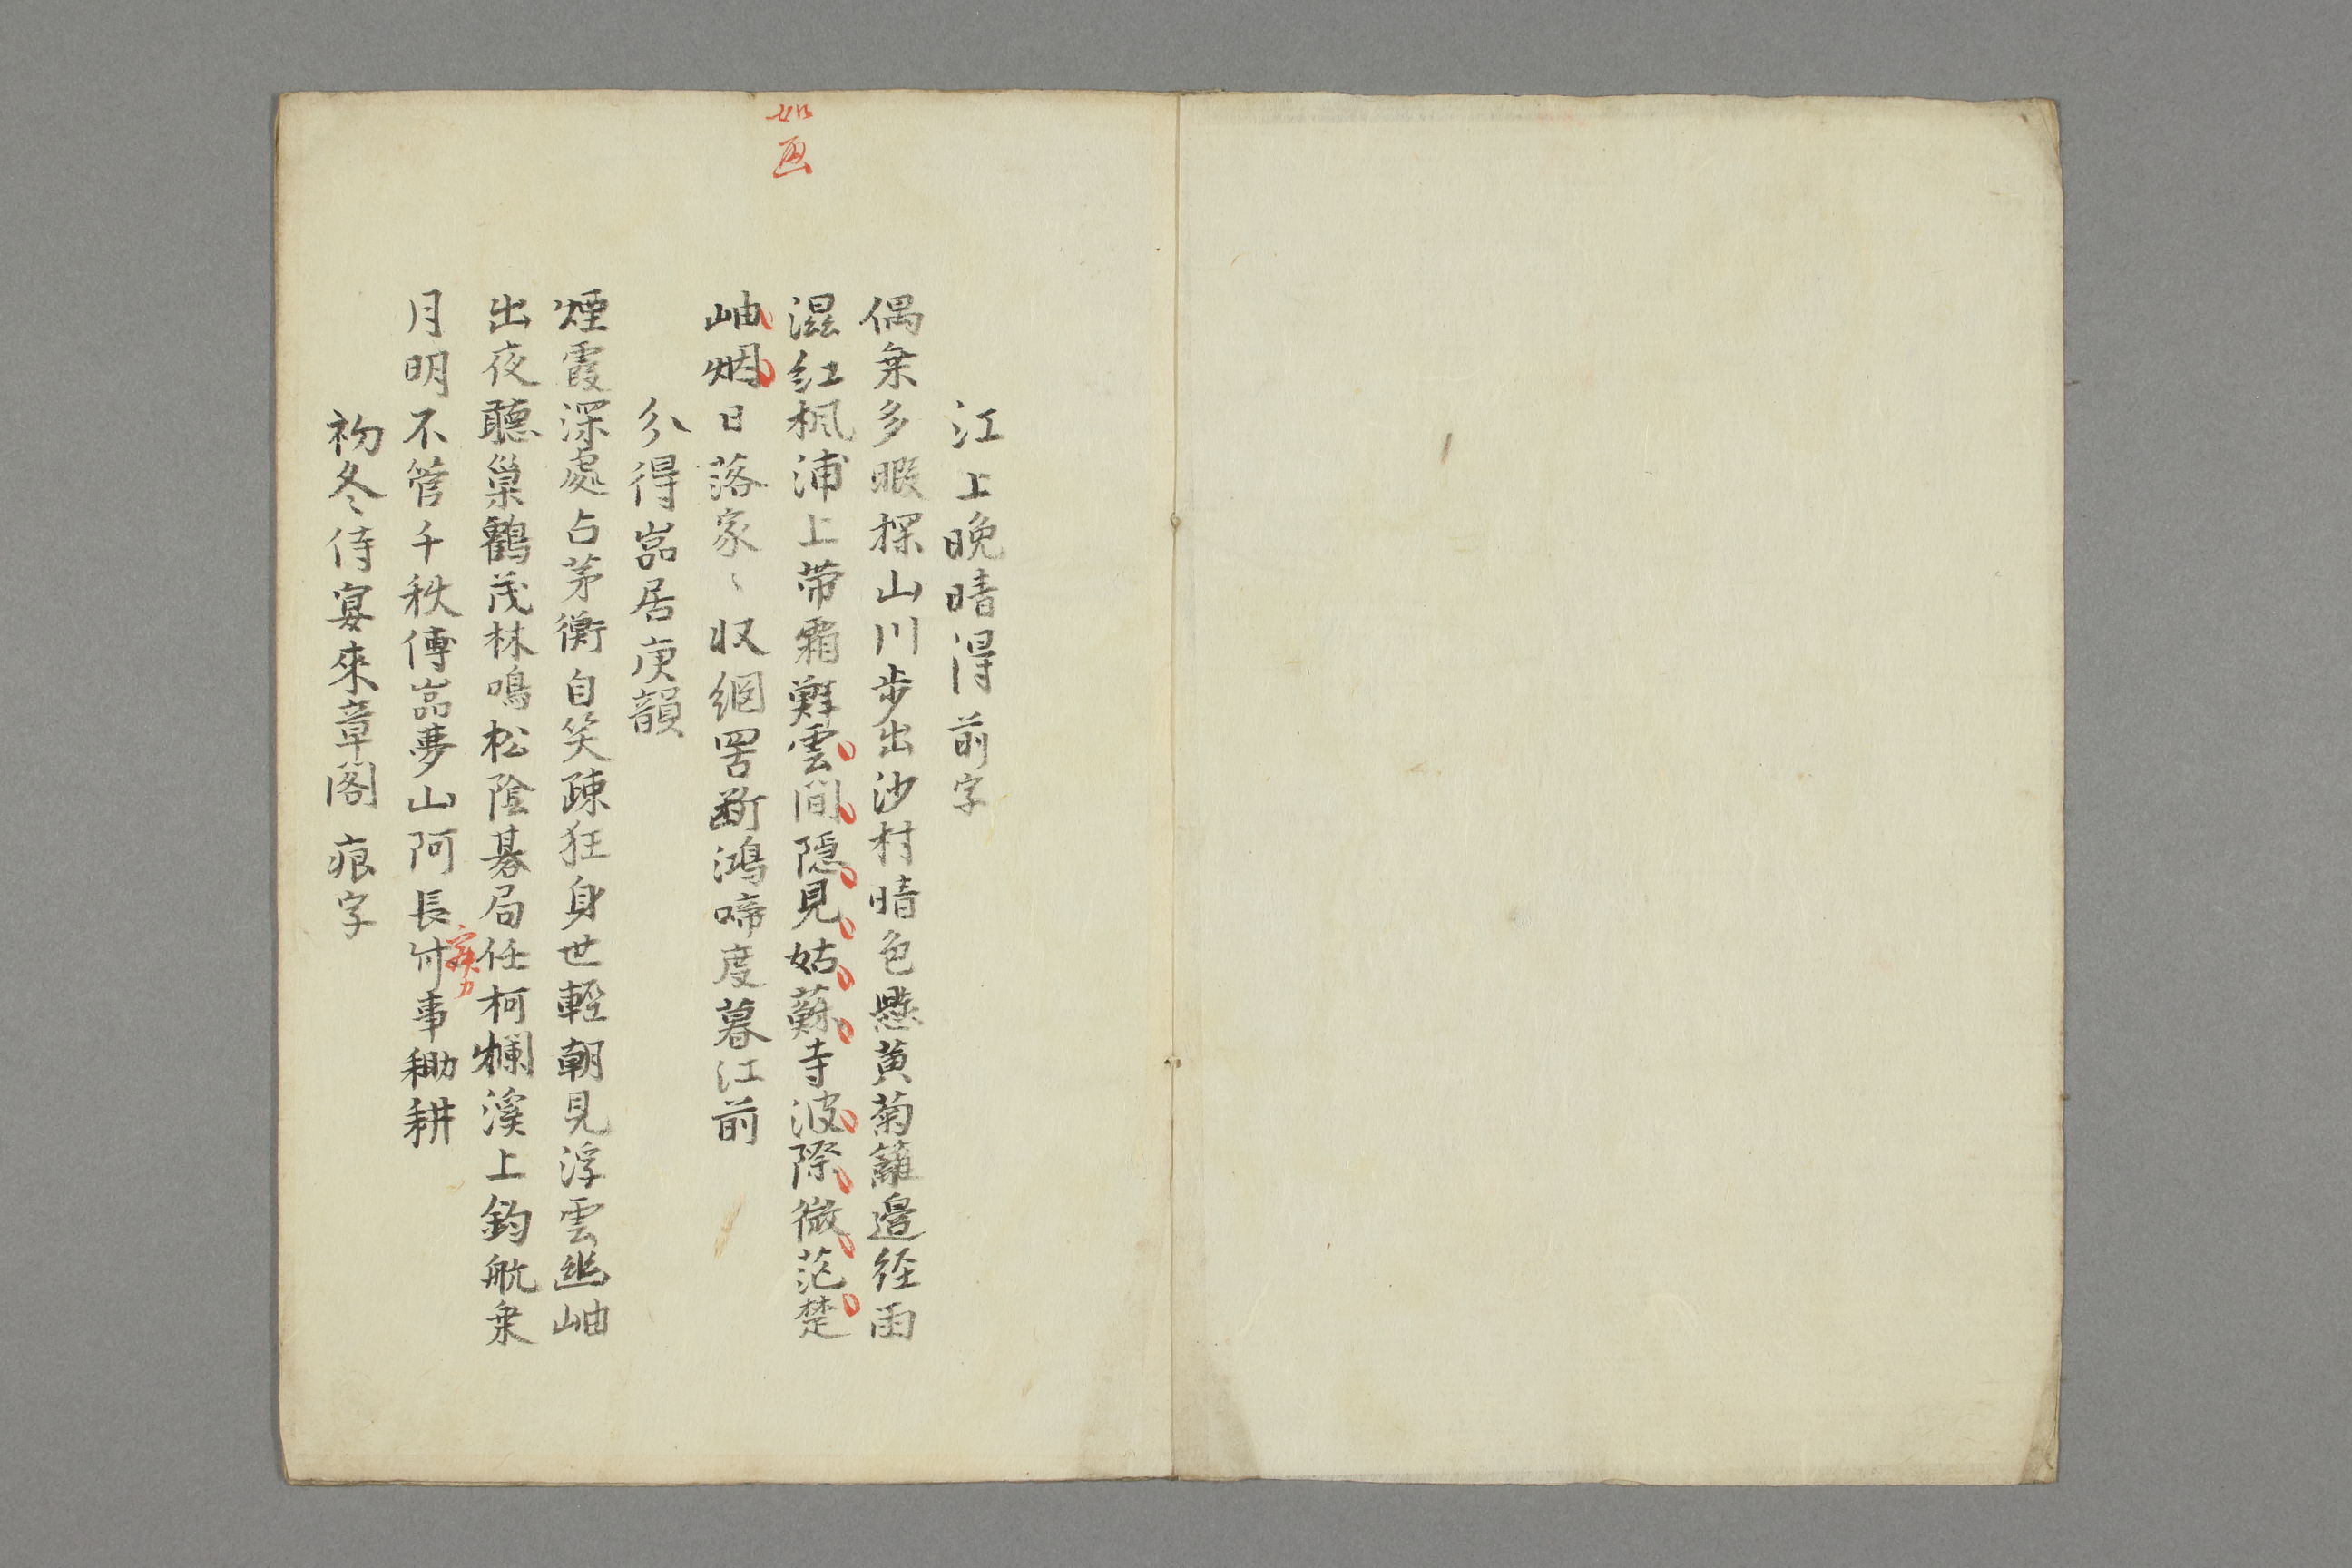 如画
江上晚晴得前字
偶乗多暇探山川歩出沙村晴色懸黄菊籬邉经雨
濕红楓浦上帯霜鮮雲間隠見姑蘇寺波際微茫楚
岫烟日落家〻収網罟断鴻啼度暮江前
分得嵓居庚韻
煙霞深處占茅衡自笑疎狂身世輕朝見浮雲幽岫
出夜聽巣鶴茂林鳴松陰碁局任柯爛溪上釣航乗
月明不管千秋傳嵓夢山阿長付事耡耕
初冬侍宴來章閣 痕字